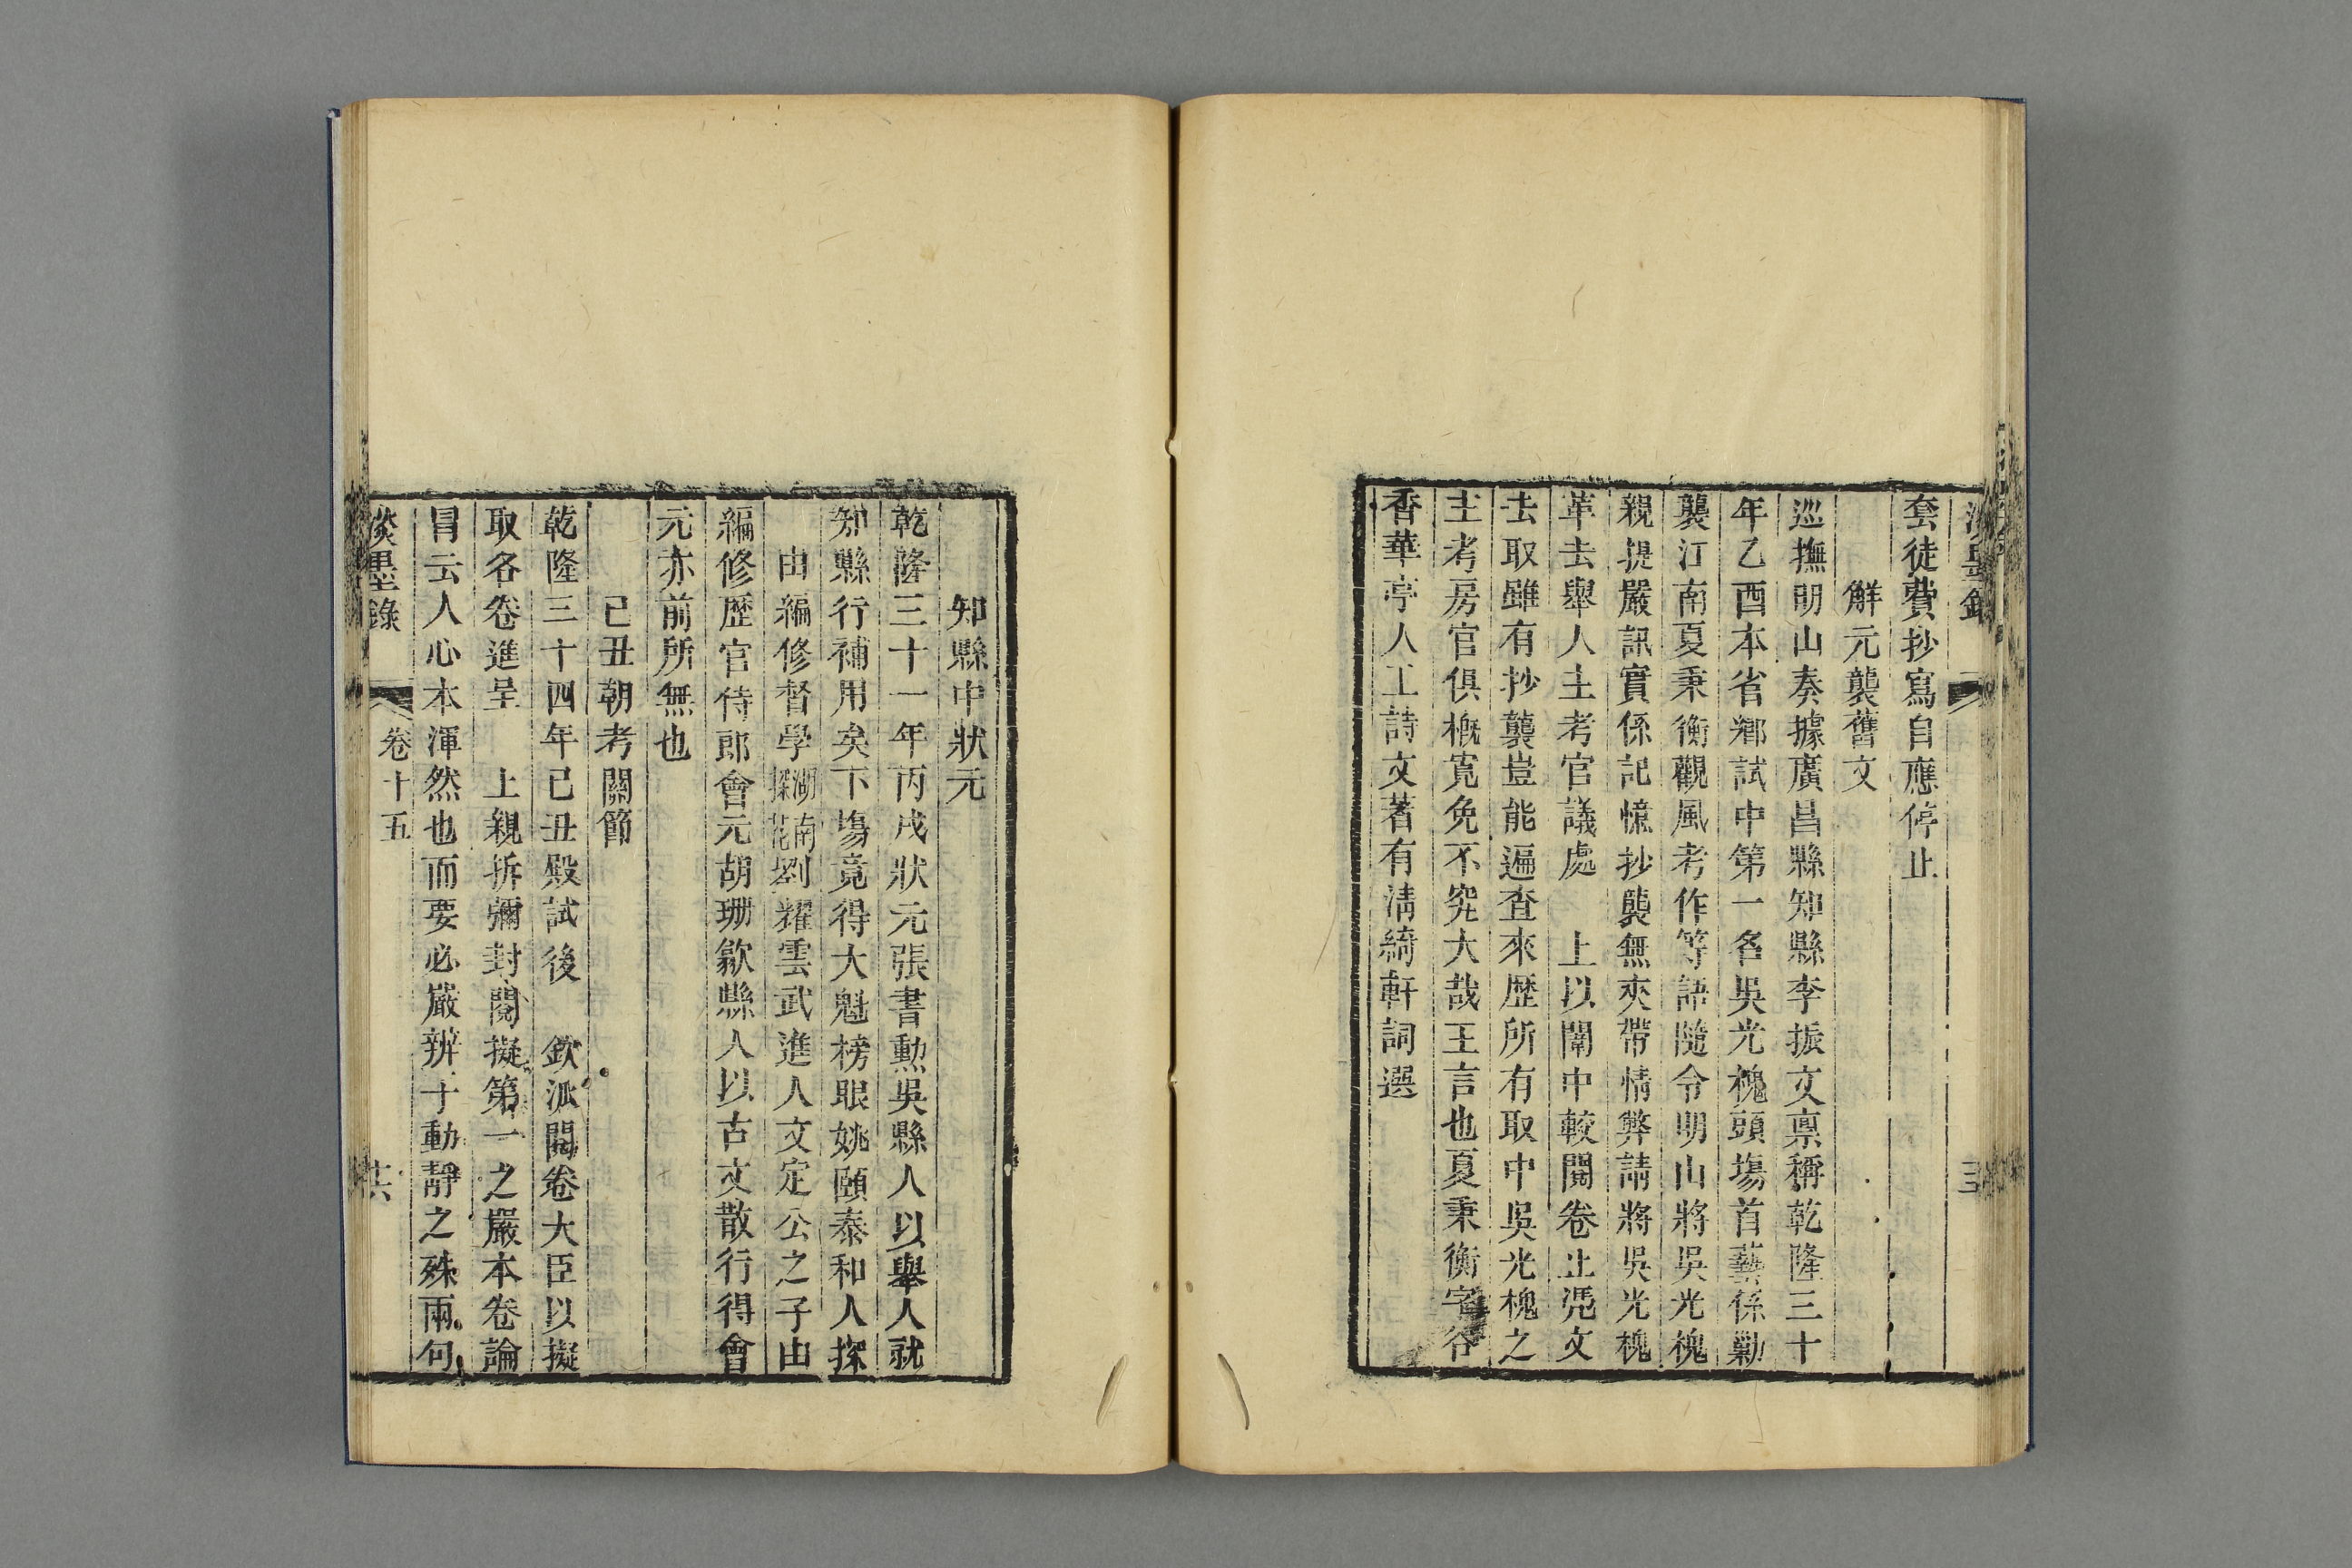 套徒費抄寫自應停止
解元襲舊文
巡撫明山奏據廣昌縣知縣李振文禀稱乾隆三十
年乙酉本省鄉試中第一名吳光槐頭塲首藝係勦
襲江南夏秉衡觀風考作等語隨令明山將吳光槐
親提嚴訊實係記憶抄襲無夾帶情弊請將吳光槐
革去舉人主考官議處　上以闈中較閱卷止凭文
去取雖有抄襲豈能遍查來歷所有取中吳光槐之
主考房官俱槪寬免不究大哉王言也夏秉衡字谷
香華亭人工詩文著有淸綺軒詞選
知縣中狀元
乾隆三十一年丙戌狀元張書勳吳縣人以舉人就
知縣行補用矣下塲竟得大魁榜眼姚頤泰和人探
由編修督學湖南探花劉耀雲武進人文定公之子由
編修歷官侍郎會元胡珊歙縣人以古文散行得會
元亦前所無也
己丑朝考關節
乾隆三十四年己丑殿試後　欽派閱卷大臣以擬
取名卷進呈　上親拆彌封閱擬第一之嚴本卷論
冒云人心本渾然也而要必嚴辨于動靜之殊兩句
淡墨錄　卷十五　十六